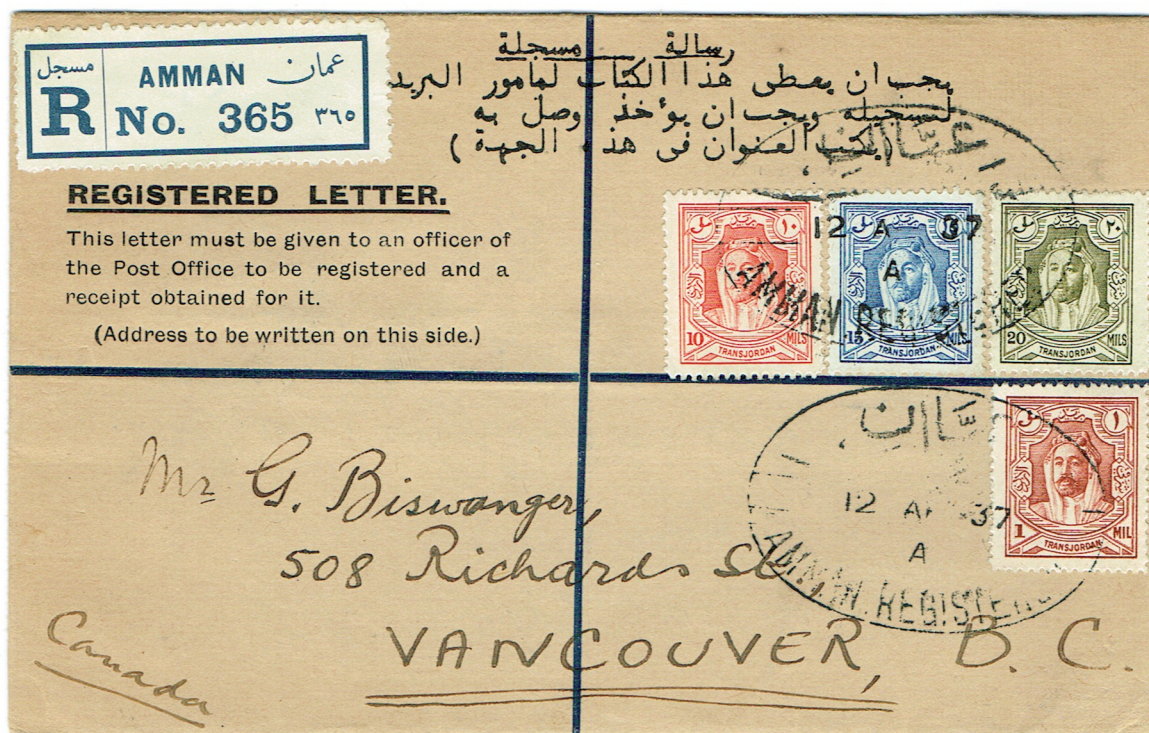 مسجل
AMMAN عمان
R No. 365 ٣٦٥
رسالة مسجلة
يجب ان يعطى هذا الكتاب لمامور البريد
لتسجيله ويجب ان يؤخذ وصل به
يكتب العنوان فى هذه الجهة )
REGISTERED LETTER.
This letter must be given to an officer of
the Post Office to be registered and a
receipt obtained for it.
(Address to be written on this side.)
١٠
10 MILS
TRANSJORDAN
15 MILS
TRANSJORDAN
٢٠
20 MILS
TRANSJORDAN
12 A 37
A
AMMAN REGISTERED
١
1 MIL
TRANSJORDAN
12 AP 37
A
AMMAN. REGISTERED
Mr G. Biswanger,
508 Richards St,
VANCOUVER, B. C.
Canada